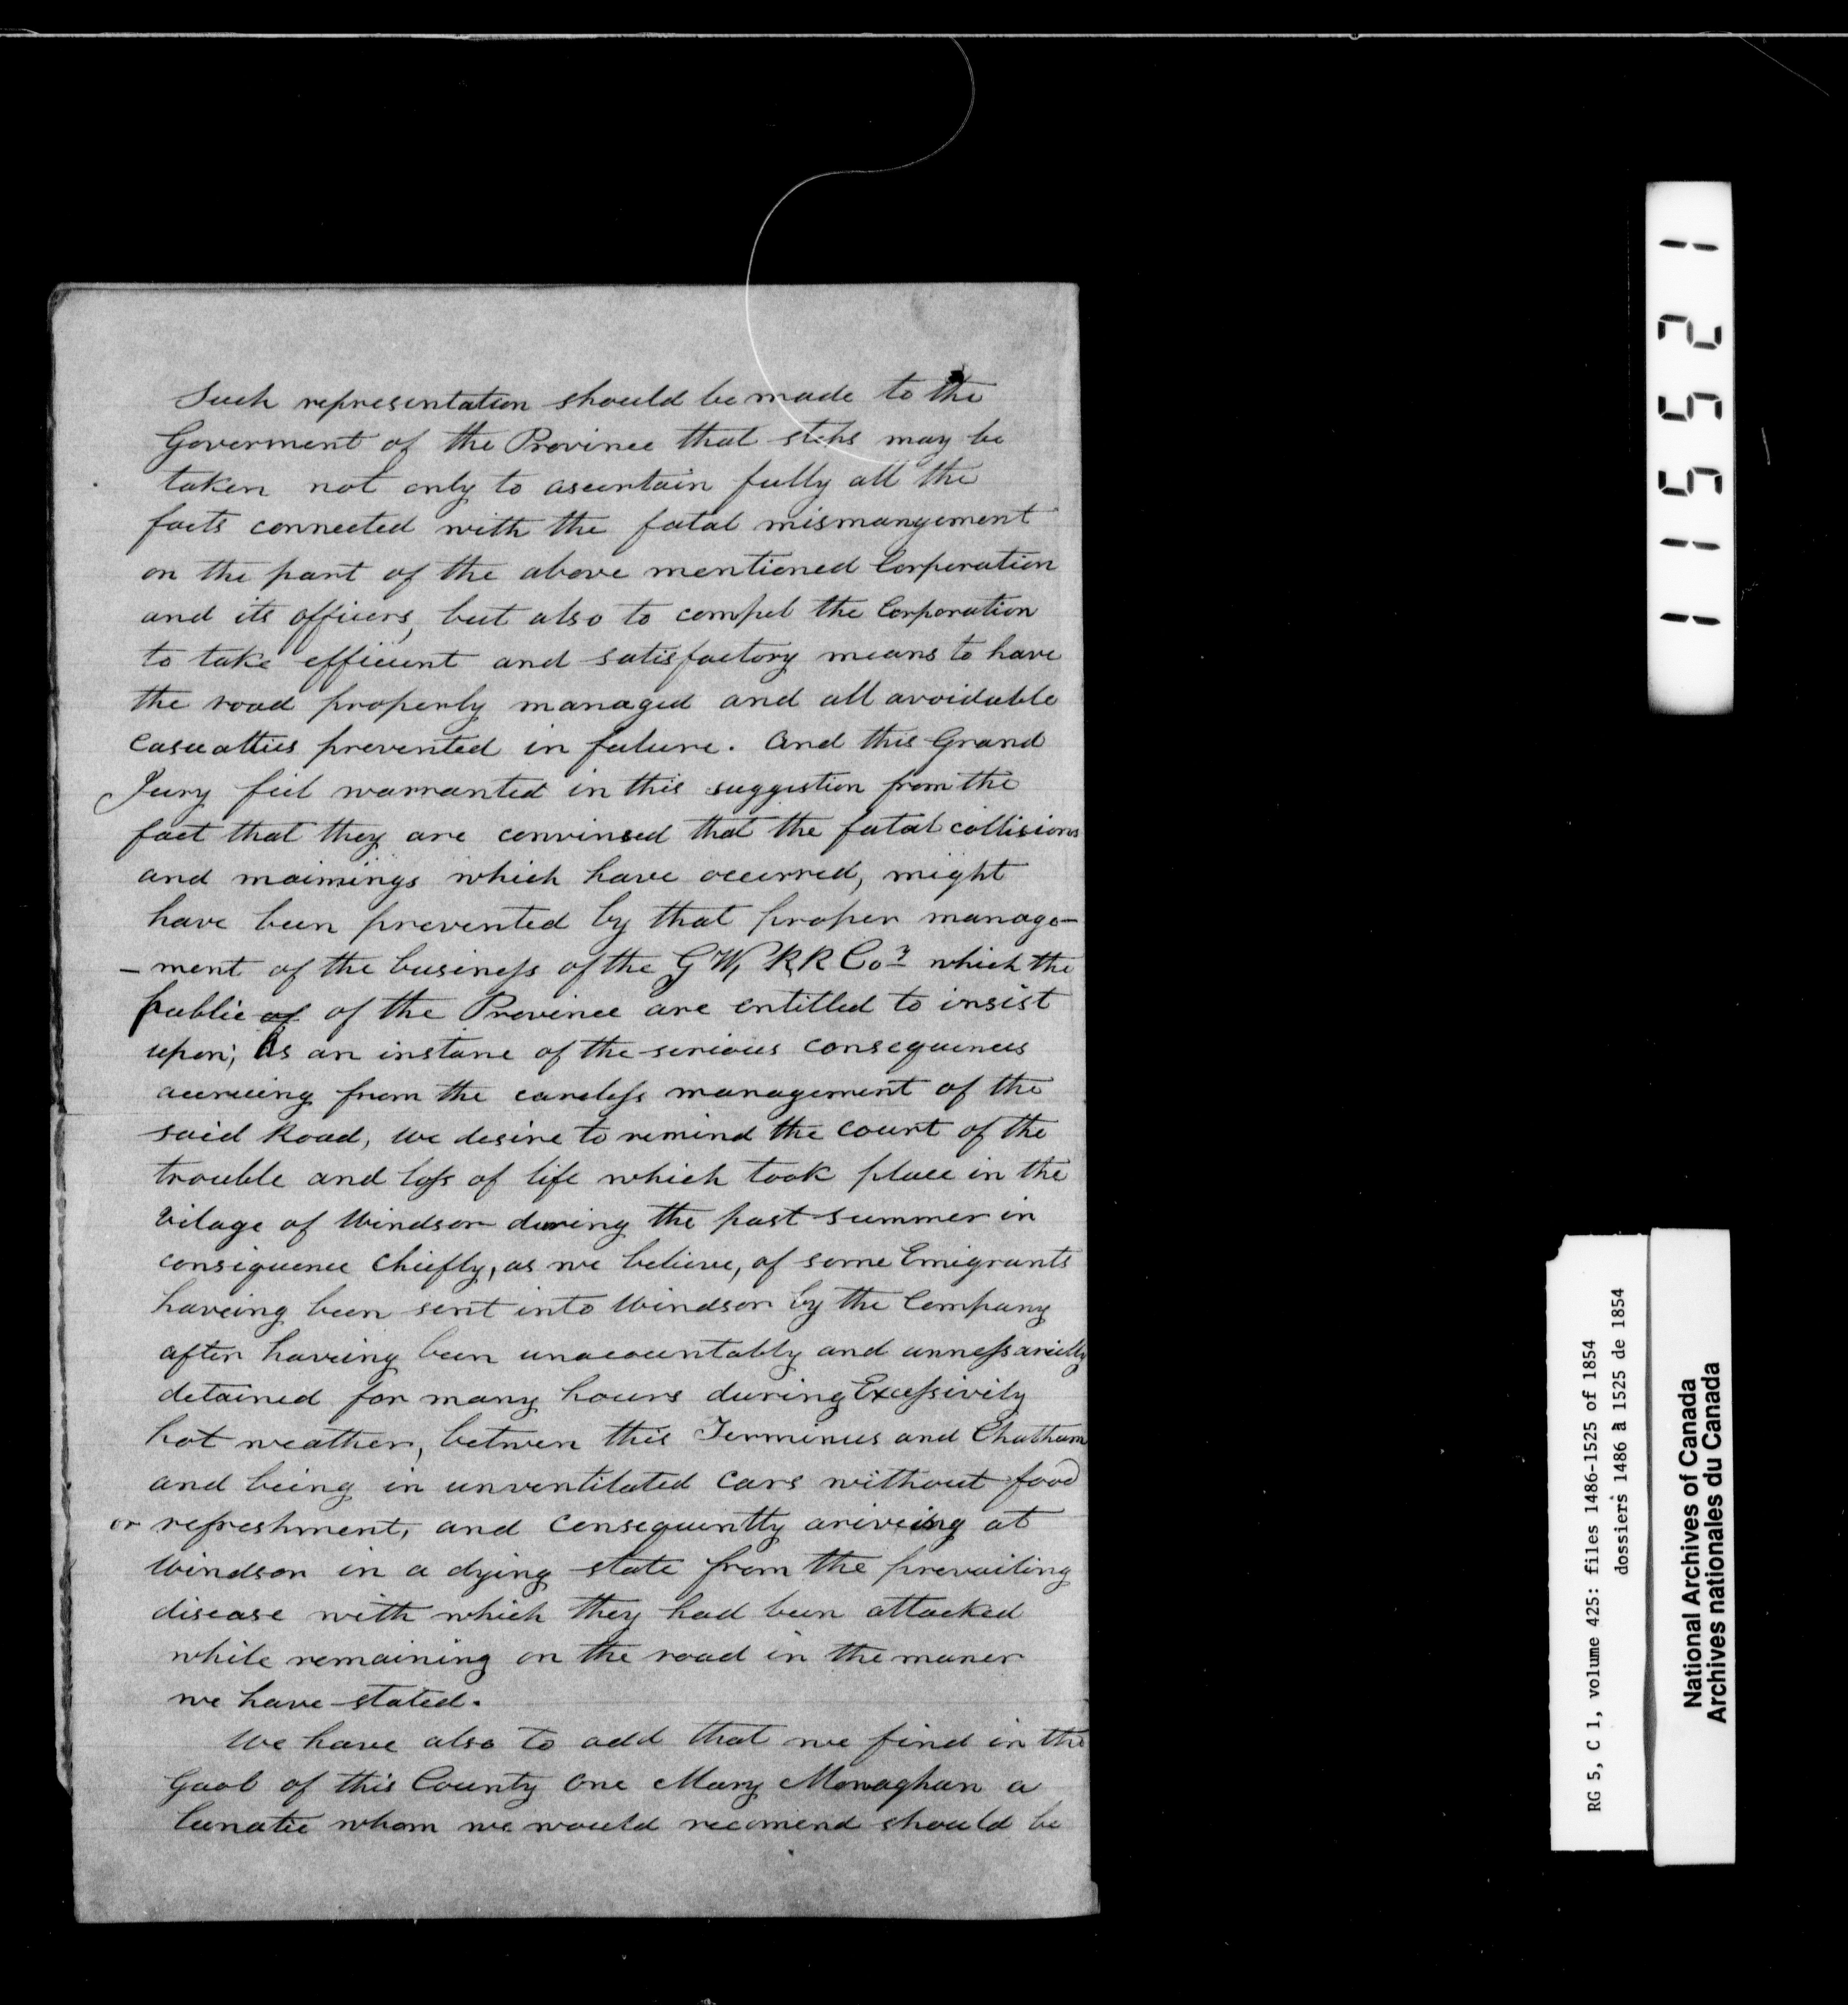 Such representation should be made to the
Goverment of the Province that steps may be
taken not only to ascertain fully all the
facts connected with the fatal mismangement
on the part of the above mentioned Corporation
and its officers, but also to compel the Corporation
to take efficient and satisfactory means to have
the road properly managed and all avoidable
casualties prevented in future. And this Grand
Jury feel warranted in this suggestion from the
fact that they are convinsed that the fatal collisions
and maimings which have occurred, might
have been prevented by that proper manage-
-ment of the business of the G W, R R Coy which the
public of of the Province are entitled to insist
upon; As an instane of the serious consequences
accrueing from the careless management of the
said Road, we desire to remind the court of the
trouble and loss of life which took place in the
Vilage of Windsor during the past summer in
consequence Chiefly, as we believe, of some Emigrants
haveing been sent into Windsor by the Company
after haveing been unaccountably and unnessarielly
detained for many hours during Excessively
hot weather, between this Terminus and Chatham
and being in unventilated Cars without food
or refreshment, and Consequently ariveing at
Windsor in a dying state from the prevailing
disease with which they had been attacked
while remaining on the road in the maner
we have stated.
We have also to add that we find in the
Gaol of this County One Mary Monaghan a
lunatic whom we would recomend should be
11552 1
RG 5, C 1, volume 425: files 1486-1525 of 1854
dossiers 1486 à 1525 de 1854
National Archives of Canada
Archives nationales du Canada